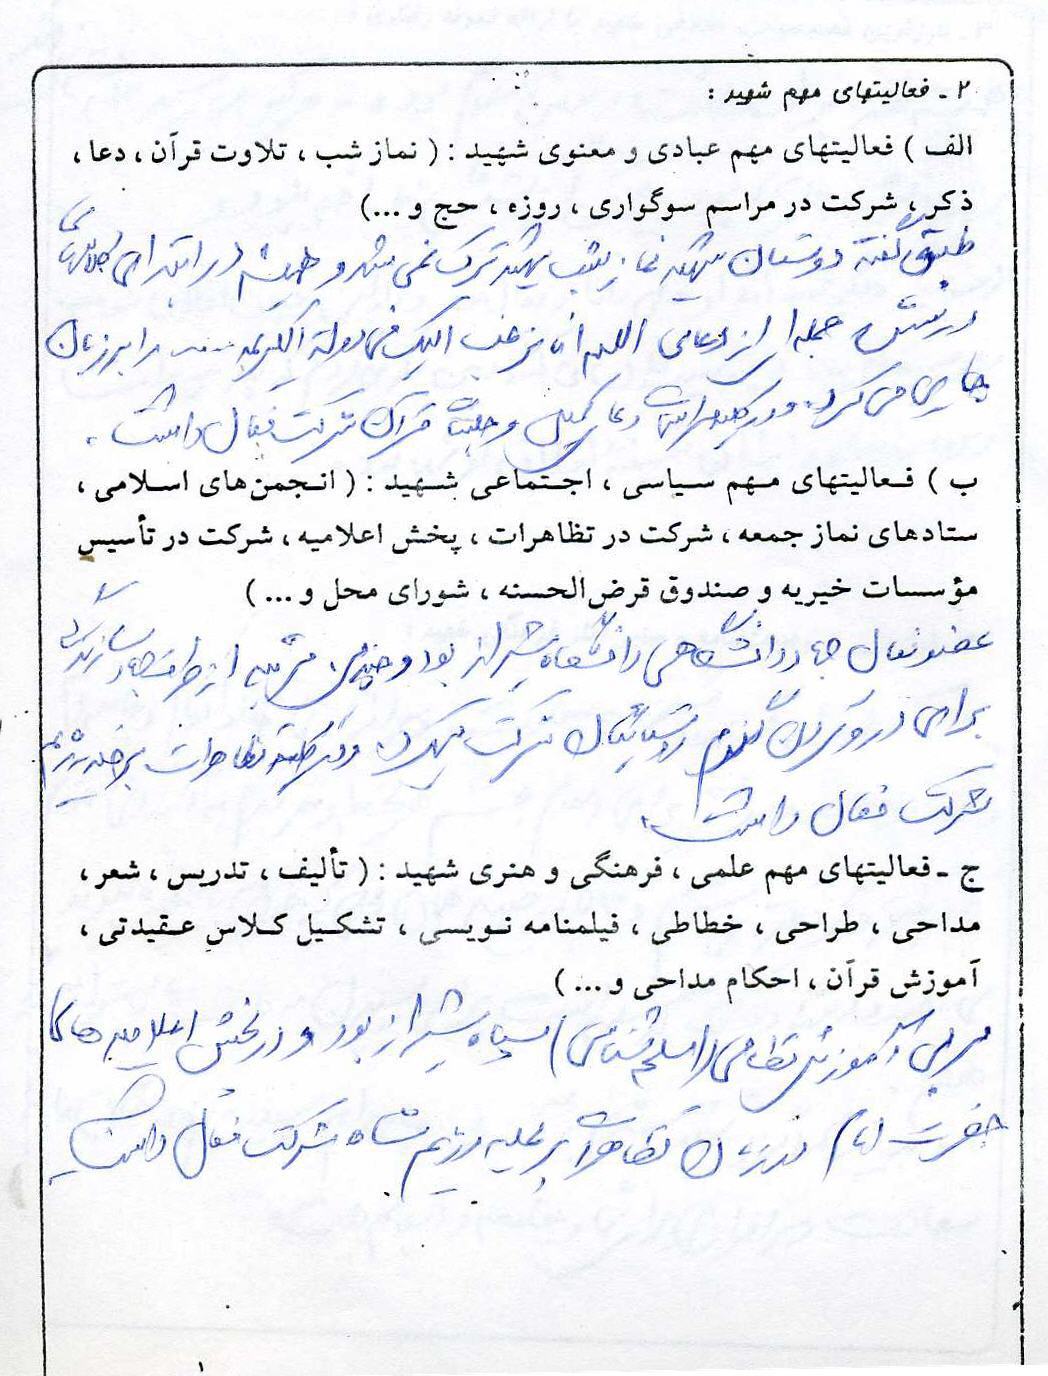 ۲ ـ فعالیتهای مهم شهید :
الف ) فعالیتهای مهم عبادی و معنوی شهید : ( نماز شب ، تلاوت قرآن ، دعا ،
ذکر ، شرکت در مراسم سوگواری ، روزه ، حج و ...)
طبق گفته دوستان شهید نماز شب شهید ترک نمی شد و همیشه در ابتدای کلاسهای
درسش جمله ای از دعای اللهم انا نرغب الیک فی دولة الکریمه .... را بر زبان
جاری می کرد. و در کلیه مراسمات دعای کمیل و جلسات قرآن شرکت فعال داشت .
ب ) فعالیتهای مهم سیاسی ، اجتماعی شهید : ( انجمن‌های اسلامی ،
ستادهای نماز جمعه ، شرکت در تظاهرات ، پخش اعلامیه ، شرکت در تأسیس
مؤسسات خیریه و صندوق قرض‌الحسنه ، شورای محل و ... )
عضو فعال جهاد دانشگاهی دانشگاه شیراز بود و چندین مرتبه از طرف جهاد سازندگی
برای درو کردن گندم روستائیان شرکت میکرد و در کلیه تظاهرات بر ضد رژیم
شرکت فعال داشت.
ج ـ فعالیتهای مهم علمی ، فرهنگی و هنری شهید : ( تألیف ، تدریس ، شعر ،
مداحی ، طراحی ، خطاطی ، فیلمنامه نویسی ، تشکیل کلاس عقیدتی ،
آموزش قرآن ، احکام مداحی و ... )
مربی آموزش نظامی (اسلحه شناسی) سپاه شیراز بود و در پخش اعلامیه های
حضرت امام در زمان تظاهرات بر علیه رژیم شاه شرکت فعال داشت
۱